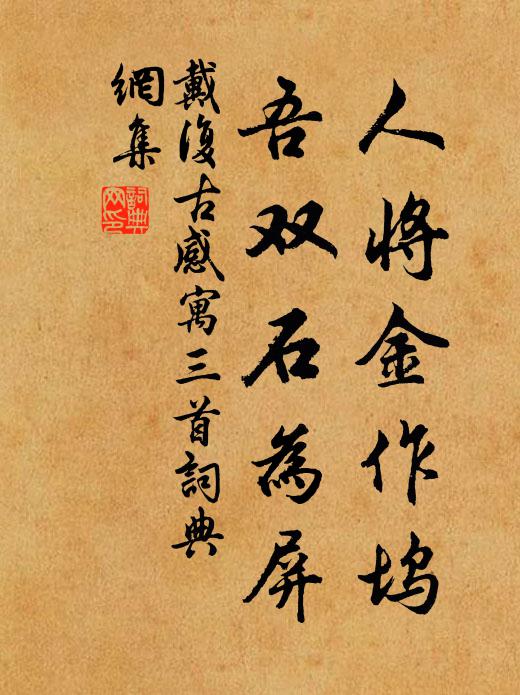 人将金作坞
吾双石為屏
戴復古感寓三首詞典
網集
詞典
网印